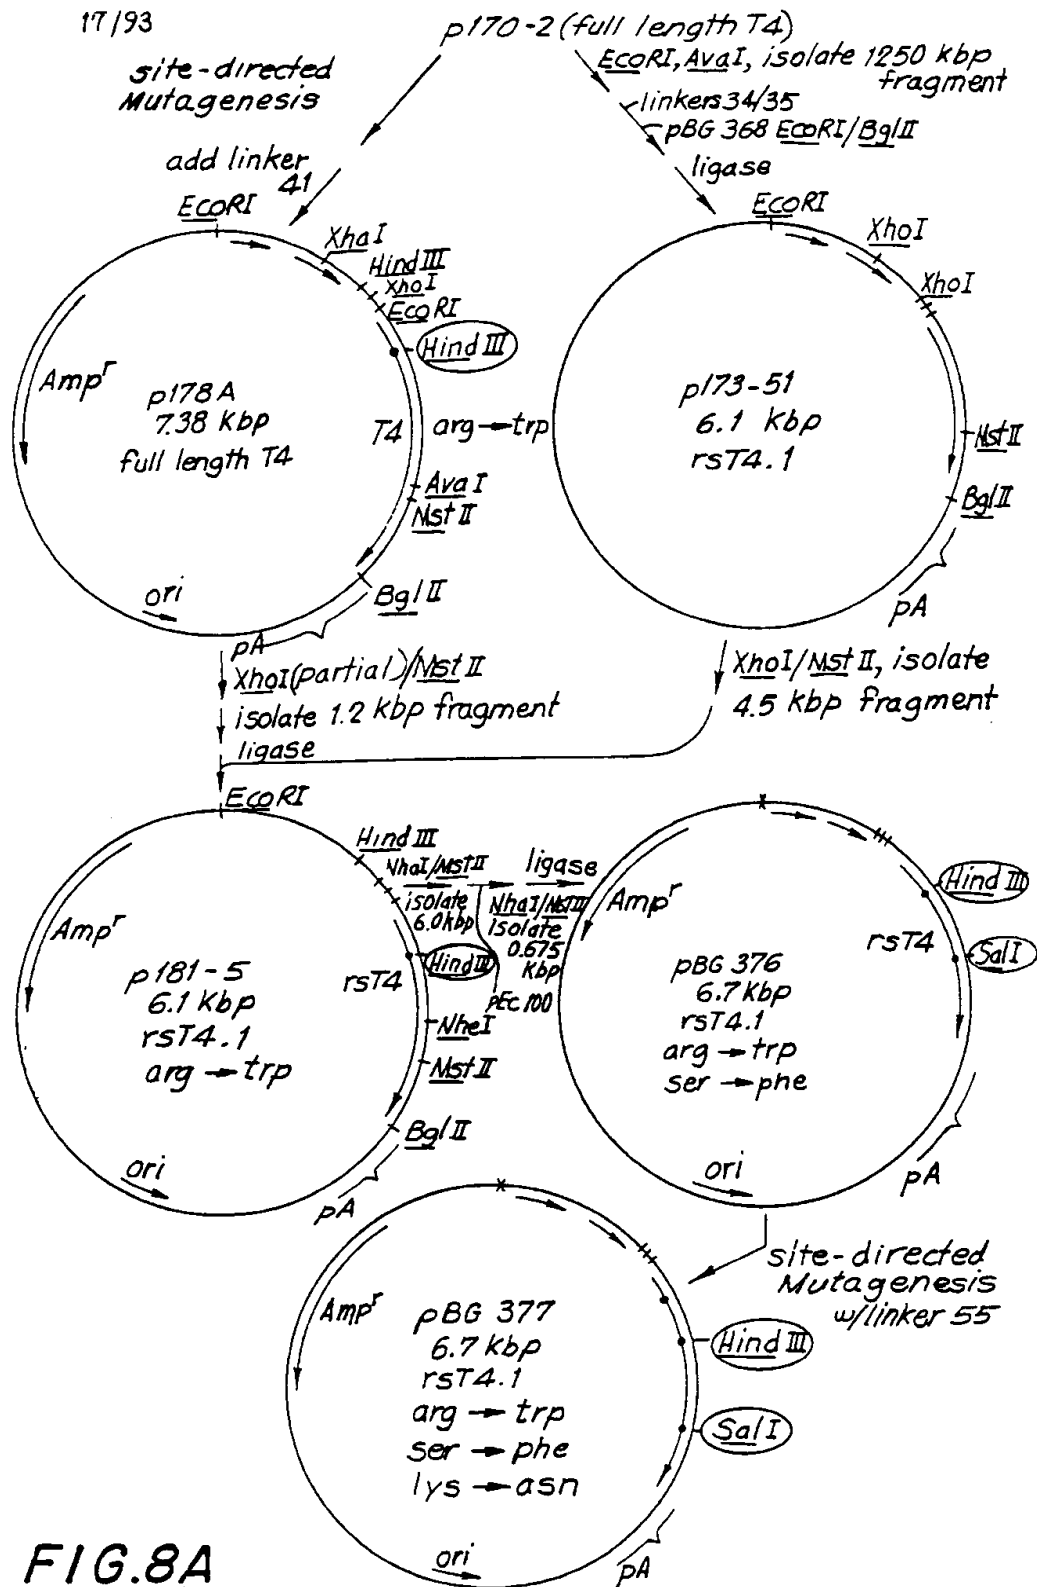 17/93
p170-2 (full length T4)
site-directed
Mutagenesis
EcoRI, AvaI, isolate 1250 Kbp
fragment
linkers 34/35
pBG 368 EcoRI/BglII
ligase
add linker
41
EcoRI
XhaI
Hind III
XhoI
EcoRI
Hind III
Ampr
p178A
7.38 Kbp
full length T4
T4
arg → trp
Ava I
Nst II
Bgl II
ori
pA
EcoRI
XhoI
XhoI
p173-51
6.1 Kbp
rsT4.1
Nst II
Bgl II
pA
XhoI(partial)/Nst II
isolate 1.2 Kbp fragment
ligase
XhoI/Mst II, isolate
4.5 Kbp fragment
EcoRI
Hind III
NhaI/Mst II
isolate
6.0 Kbp
ligase
NhaI/Nst II
isolate
0.675
Kbp
pEc100
Ampr
p181-5
6.1 Kbp
rsT4.1
arg → trp
rsT4
Hind III
NheI
Mst II
Bgl II
ori
pA
Ampr
pBG 376
6.7 Kbp
rsT4.1
arg → trp
ser → phe
rsT4
Hind III
Sal I
ori
pA
site-directed
Mutagenesis
w/linker 55
Ampr
pBG 377
6.7 Kbp
rsT4.1
arg → trp
ser → phe
lys → asn
Hind III
Sal I
ori
pA
FIG.8A